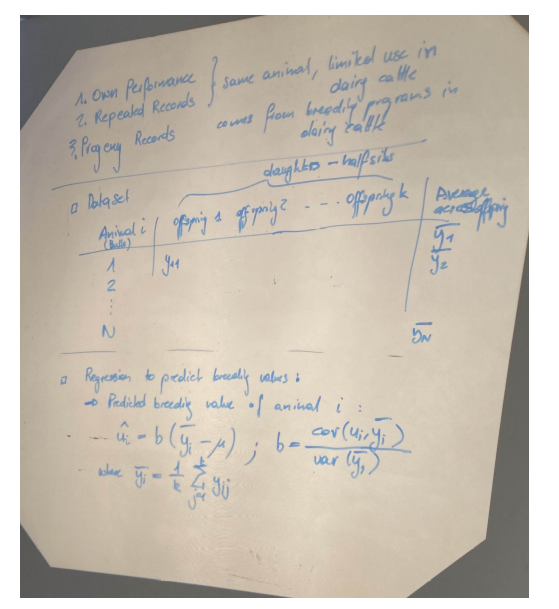 1. Own Performance } same animal, limited use in
2. Repeated Records dairy cattle
3. Progeny Records comes from breeding programs in
dairy cattle
daughters - half sibs
□ Dataset
Animal i offspring 1 offspring 2 - - - offspring k Average
(Bulls) across offspring
1 y11 ȳ1
2 ȳ2
⋮
N ȳN
□ Regression to predict breeding values :
→ Predicted breeding value of animal i :
ûi = b (ȳi - μ) ; b = cov(ui, ȳi) / var(ȳi)
where ȳi = 1/k Σ_{j=1}^{k} yij